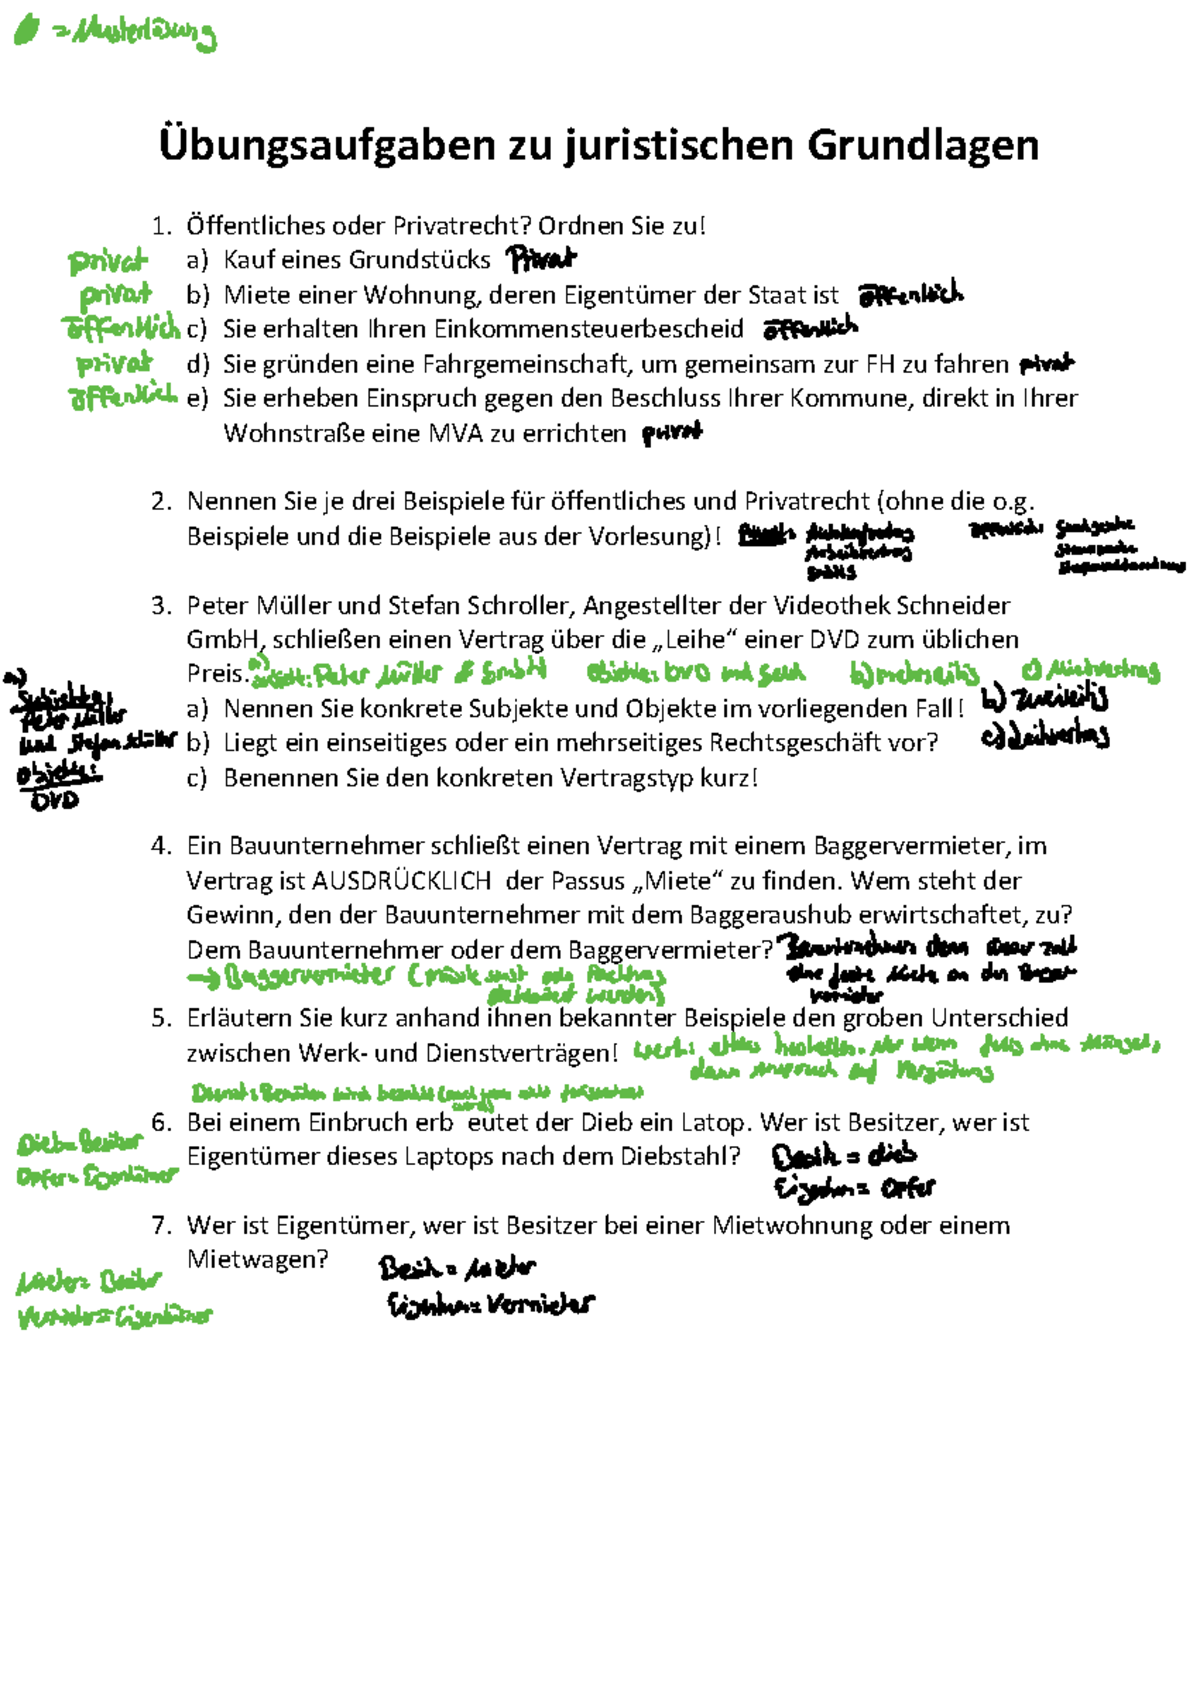 = Musterlösung
Übungsaufgaben zu juristischen Grundlagen
1. Öffentliches oder Privatrecht? Ordnen Sie zu!
privat a) Kauf eines Grundstücks Privat
privat b) Miete einer Wohnung, deren Eigentümer der Staat ist öffenlich
öffentlich c) Sie erhalten Ihren Einkommensteuerbescheid öffentlich
privat d) Sie gründen eine Fahrgemeinschaft, um gemeinsam zur FH zu fahren pivat
öffentlich e) Sie erheben Einspruch gegen den Beschluss Ihrer Kommune, direkt in Ihrer
Wohnstraße eine MVA zu errichten privat
2. Nennen Sie je drei Beispiele für öffentliches und Privatrecht (ohne die o.g.
Beispiele und die Beispiele aus der Vorlesung)!
Arbeitsvertrag
3. Peter Müller und Stefan Schroller, Angestellter der Videothek Schneider
GmbH, schließen einen Vertrag über die „Leihe“ einer DVD zum üblichen
Preis. a) Peter Müller & GmbH Objekte: DVD und Geld b) mehrseitig c) Mietvertrag
a) Nennen Sie konkrete Subjekte und Objekte im vorliegenden Fall! b) zweiseitig
b) Liegt ein einseitiges oder ein mehrseitiges Rechtsgeschäft vor? c) Leihvertrag
c) Benennen Sie den konkreten Vertragstyp kurz!
a)
Subjekte:
Peter Müller
und Stefan
Objekte:
DVD
4. Ein Bauunternehmer schließt einen Vertrag mit einem Baggervermieter, im
Vertrag ist AUSDRÜCKLICH der Passus „Miete“ zu finden. Wem steht der
Gewinn, den der Bauunternehmer mit dem Baggeraushub erwirtschaftet, zu?
Dem Bauunternehmer oder dem Baggervermieter? Bauunternehmer denn dieser zahlt
eine feste Miete an den Bagger
vermieter
→ Baggervermieter (müsste sonst als Pachtvertrag
deklariert werden)
5. Erläutern Sie kurz anhand ihnen bekannter Beispiele den groben Unterschied
zwischen Werk- und Dienstverträgen! Werk: etwas herstellen. Nur wenn ohne Mängel,
dann Anspruch auf Vergütung
Dienst: Bemühen wird bezahlt
6. Bei einem Einbruch erb eutet der Dieb ein Latop. Wer ist Besitzer, wer ist
Eigentümer dieses Laptops nach dem Diebstahl? Besitz = dieb
Eigentum = Opfer
Dieb = Besitzer
Opfer = Eigentümer
7. Wer ist Eigentümer, wer ist Besitzer bei einer Mietwohnung oder einem
Mietwagen? Besitz = Mieter
Eigentum = Vermieter
Mieter = Besitzer
Vermieter = Eigentümer